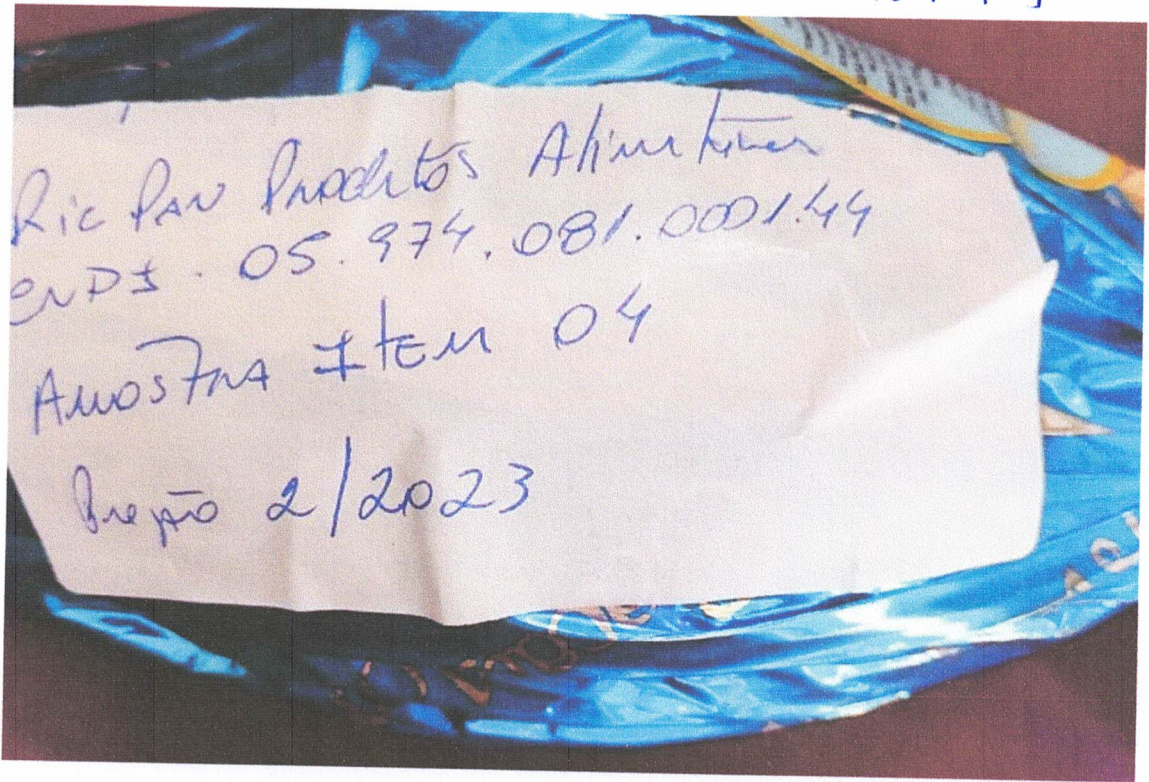 Ric Pan Produtos Alimentícios
CNPJ. 05.974.081.0001.44
Amostra Item 04
Pregão 2/2023